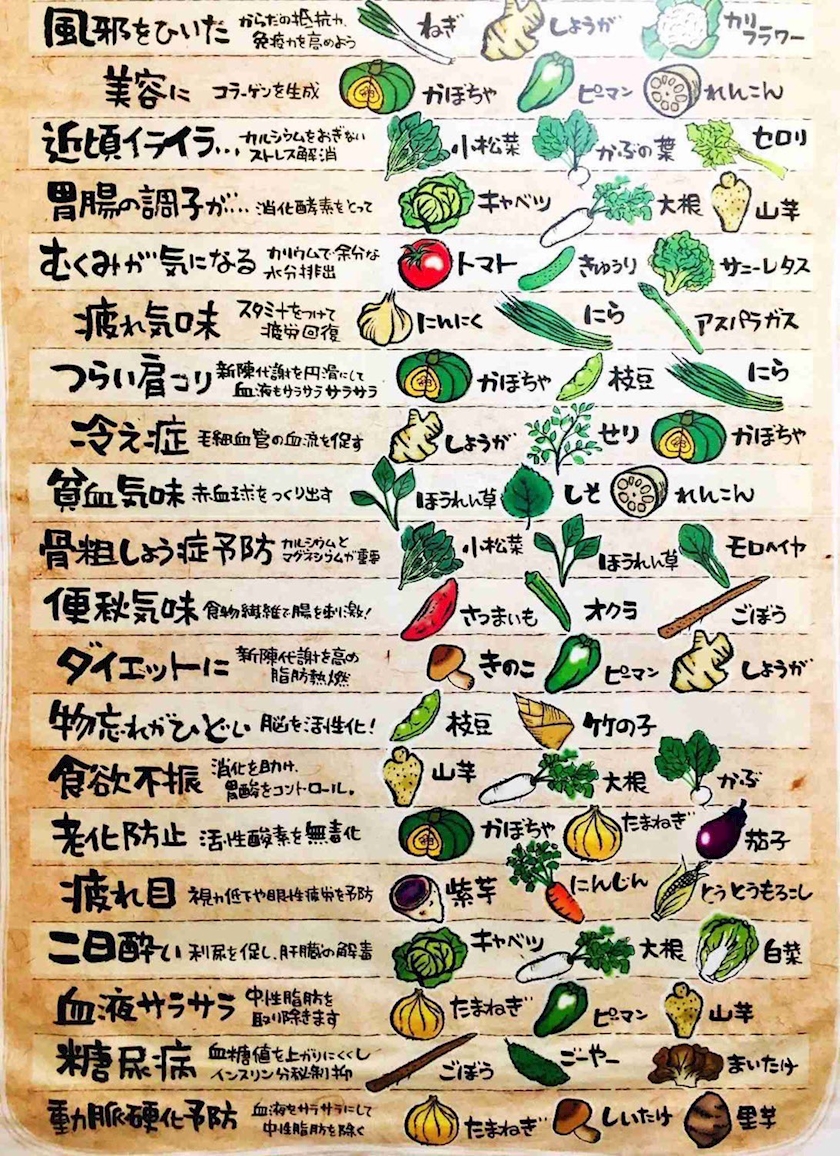 風邪をひいた からだの抵抗力、免疫力を高めよう ねぎ しょうが カリフラワー
美容に コラーゲンを生成 かぼちゃ ピーマン れんこん
近頃イライラ... カルシウムをおぎない ストレス解消 小松菜 かぶの葉 セロリ
胃腸の調子が... 消化酵素をとって キャベツ 大根 山芋
むくみが気になる カリウムで余分な水分排出 トマト きゅうり サニーレタス
疲れ気味 スタミナをつけて疲労回復 にんにく にら アスパラガス
つらい肩コリ 新陳代謝を円滑にして血液もサラサラサラサラ かぼちゃ 枝豆 にら
冷え症 毛細血管の血流を促す しょうが せり かぼちゃ
貧血気味 赤血球をつくり出す ほうれん草 しそ れんこん
骨粗しょう症予防 カルシウムとマグネシウムが重要 小松菜 ほうれん草 モロヘイヤ
便秋気味 食物繊維で腸を刺激! さつまいも オクラ ごぼう
ダイエットに 新陳代謝を高め脂肪熱燃 きのこ ピーマン しょうが
物忘れがひどい 脳を活性化! 枝豆 竹の子
食欲不振 消化を助け、胃酸をコントロール。 山芋 大根 かぶ
老化防止 活性酸素を無毒化 かぼちゃ たまねぎ 茄子
疲れ目 視力低下や眼性疲労を予防 紫芋 にんじん とうとうもろこし
二日酔い 利尿を促し、肝臓の解毒 キャベツ 大根 白菜
血液サラサラ 中性脂肪を取り除きます たまねぎ ピーマン 山芋
糖尿病 血糖値を上がりにくくし インスリン分秘制抑 ごぼう ごーやー まいたけ
動脈硬化予防 血液をサラサラにして中性脂肪を除く たまねぎ しいたけ 里芋